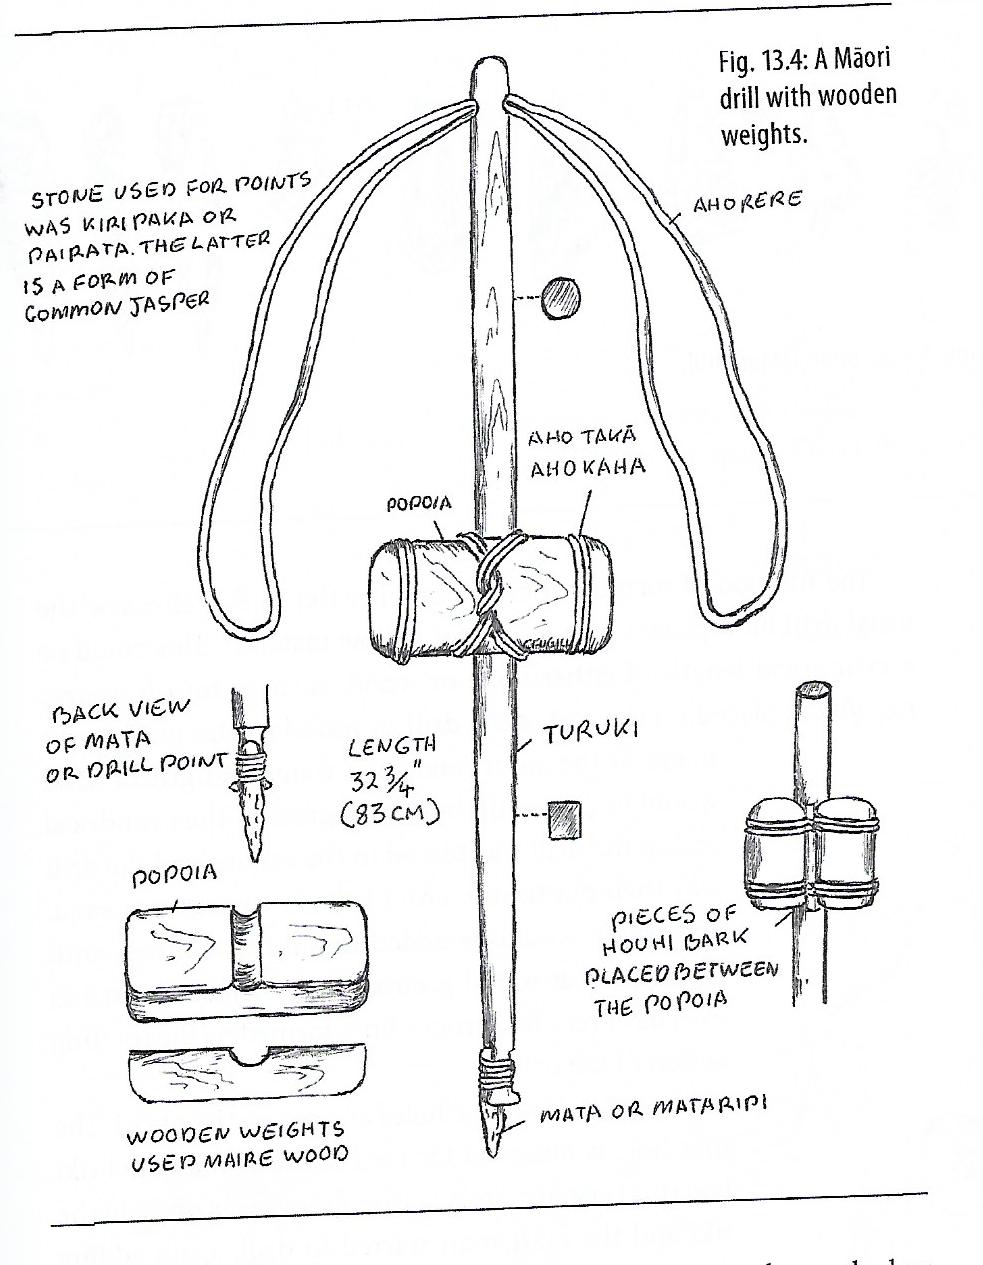 Fig. 13.4: A Māori
drill with wooden
weights.
STONE USED FOR POINTS
WAS KIRIPAKA OR
PAIRATA. THE LATTER
IS A FORM OF
COMMON JASPER
AHORERE
AHO TAKĀ
AHO KAHA
POPOIA
BACK VIEW
OF MATA
OR DRILL POINT
LENGTH
32 3/4"
(83 CM)
TURUKI
POPOIA
PIECES OF
HOUHI BARK
PLACED BETWEEN
THE POPOIA
MATA OR MATARIPI
WOODEN WEIGHTS
USED MAIRE WOOD